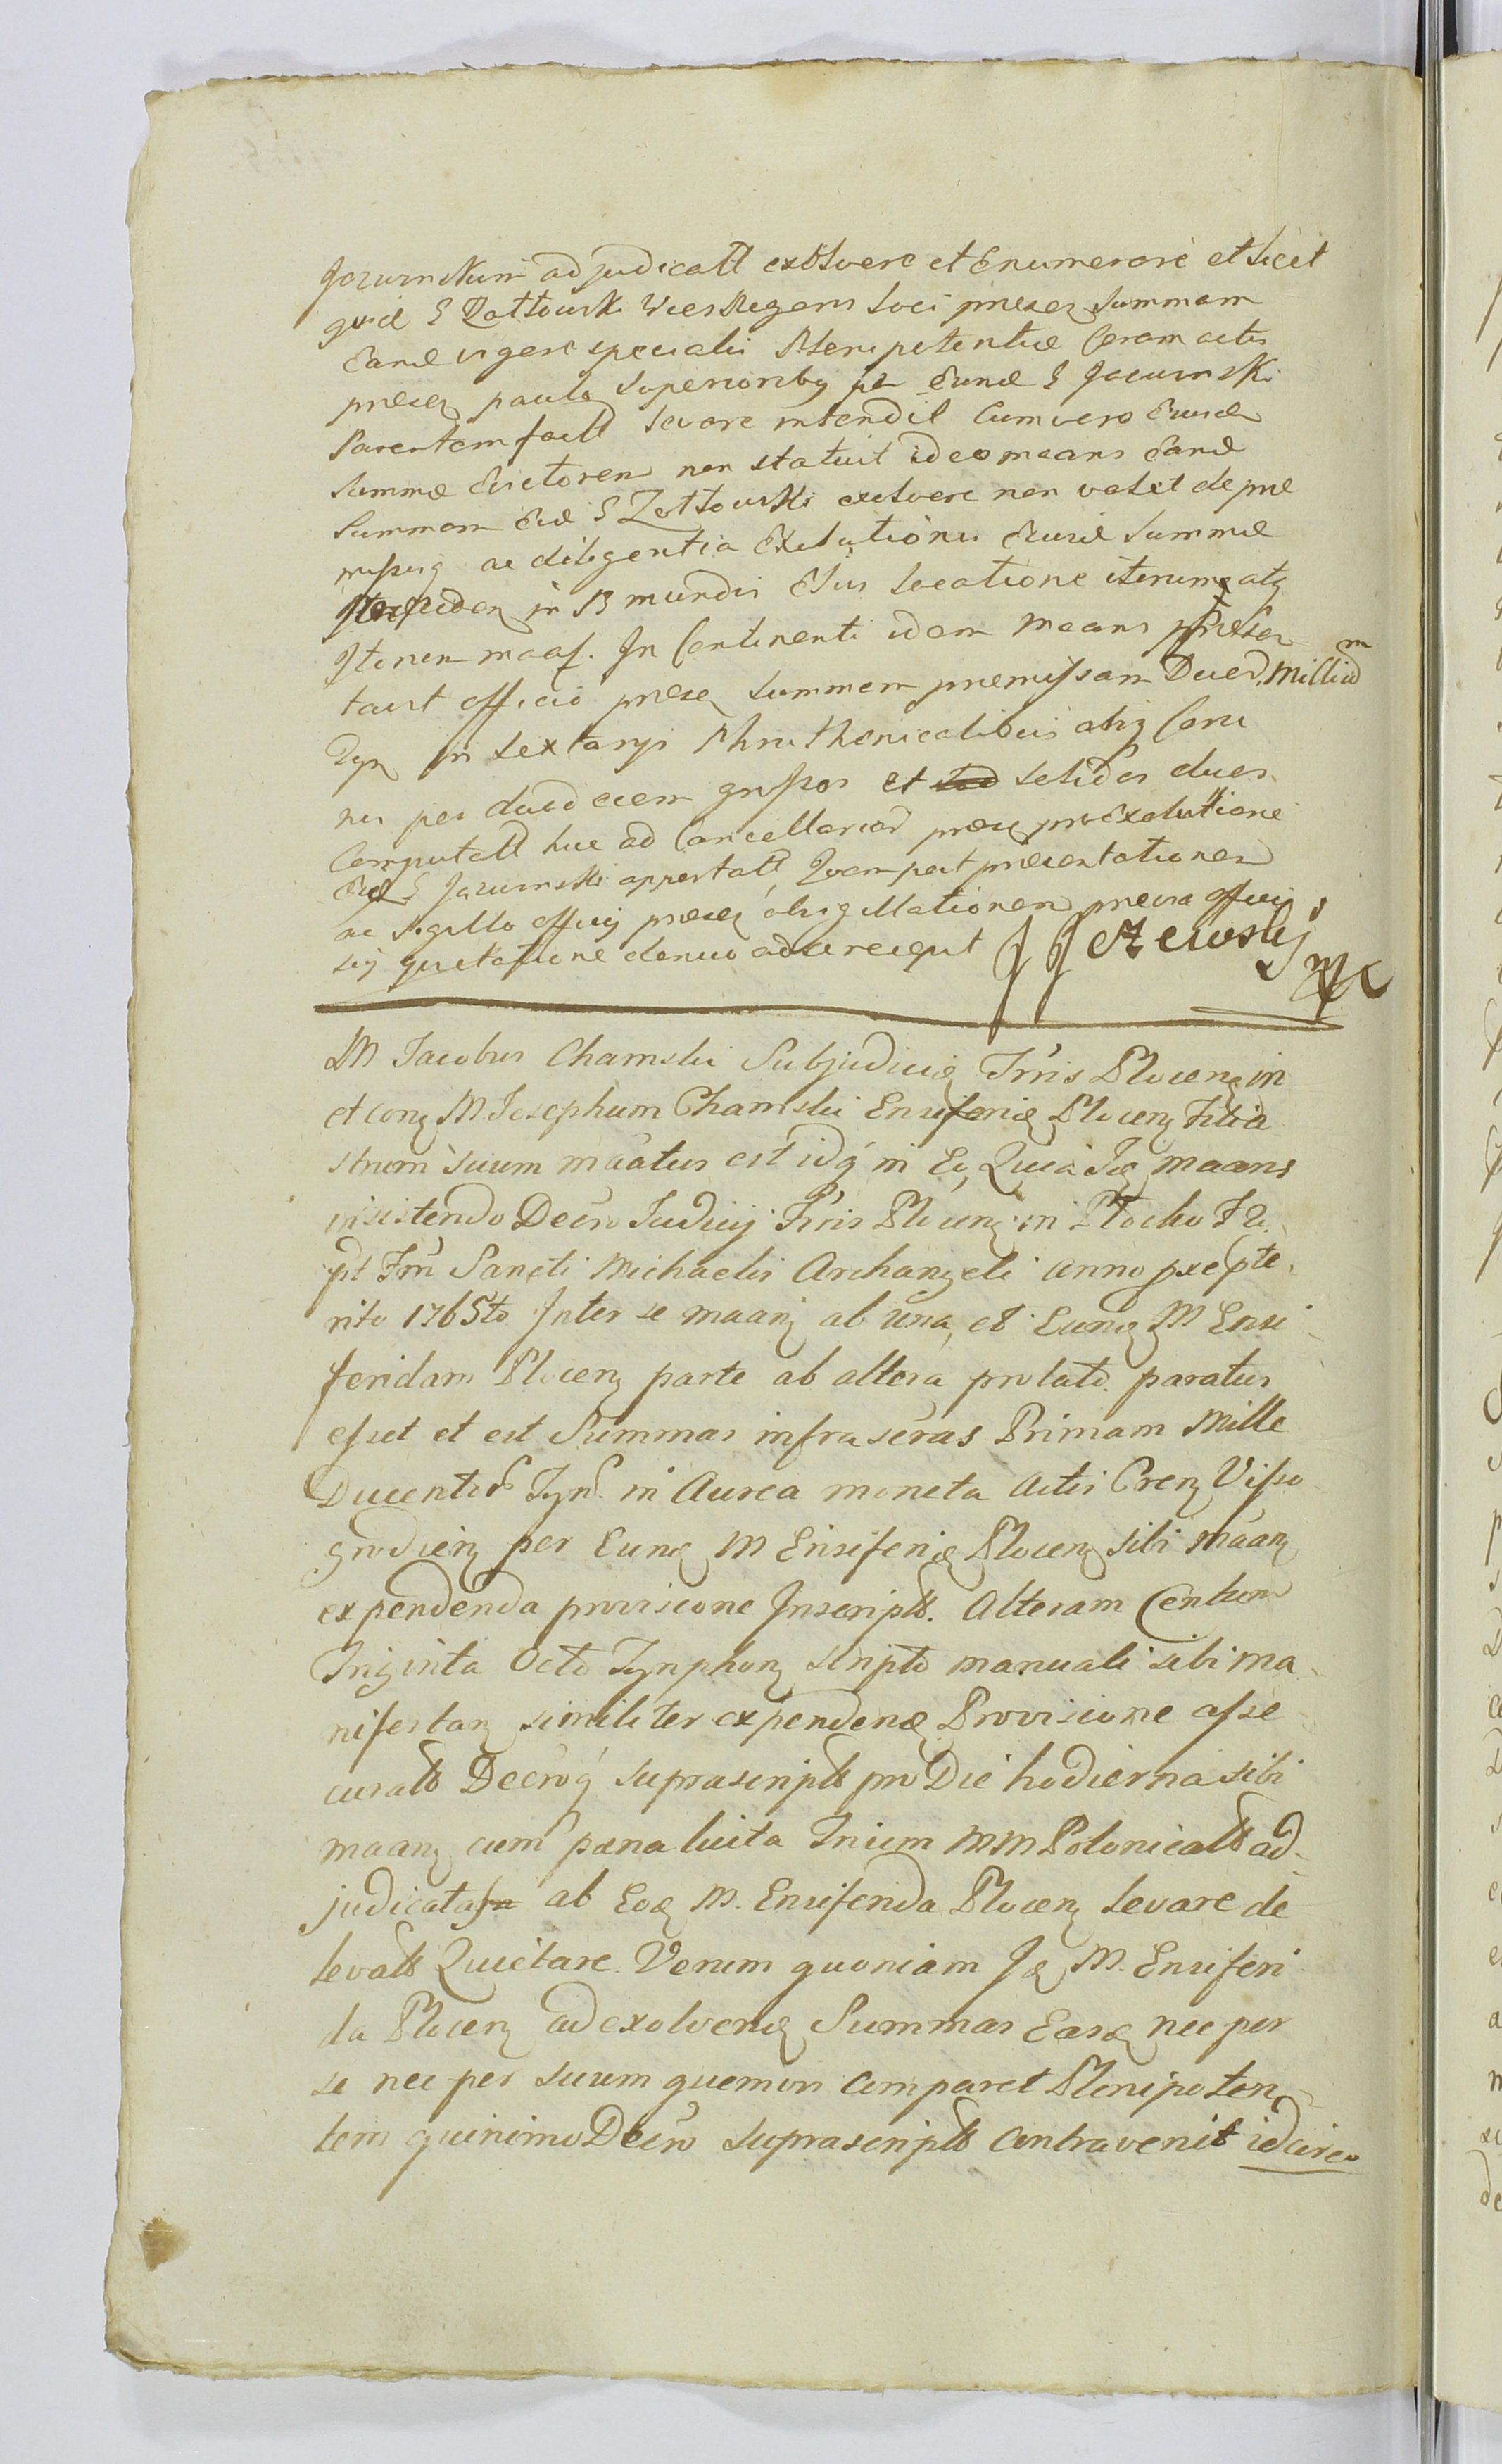 Jozwinskum adjudicatt exolvere et Enumerare et licet
gnd G Zołtowski Vices Regens loci præsen summam
Eand vigore specialis Plenipotentiæ coram actis
præsen paulo superioribq per Eund G Jozwinski
Parentem fatt levare intendit Cum vero Eiusd
summæ Evictorem non statuit ideo maans Eand
Summam Eid G Zołtowski exolvere non valet de præ
missis ac diligentia Exolutionis Eiusd summæ
ibidem in B mundis Ejus locatione iterum atq
Iterum maas. In Continenti idem maans præsen
tavit officio præsen summam præmissam Duod. Millium
Tyn in sextanis Phruthenicalibus aliq Cons
nis per duodecem grossos et solidos duos
Computatt huc ad Cancellariam præsen pro Exolutione
Eid G Jozwinski apportatt, Quam post præsentationem
ac Sigillo officij præsen obsigillationem prævia officij
sij quietatione denuo ad se recepit J J
M Jacobus Chamski Subjudicis Trris Plocen in
et con M Josephum Chamski Ensiferid Plocen Filia
strum suum maatus est idq in Eo, Quia Id maans
insistendo Decro Judicij Trris Plocen in Płocko F 2
pt Fm Sancti Michaelis Archangeli anno præte
rito 1765to Inter se maan ab una, et Eund M Ensi
feridam Plocen parte ab altera prolato paratus
esset et est Summas infrascras Primam Mille
Ducentor Tynf. in Aurea moneta Actis Cren Visso
grodien per Eund M Ensiferid Plocen sibi maan
expendenda provisione Inscriptt. Alteram Centum
Triginta Octo Tynphon scripto manuali sibi ma
nifestan similiter expendend Provisione asse
curatt Decroq suprascriptt pro Die hodierna sibi
maan cum pæna lucita Trium MM Polonicatt ad
judicata ab Eod M. Ensiferida Plocen levare de
levatt Quietare. Verum quoniam Id M. Ensiferi
da Plocen ad exolvend Summas Easd nec per
se nec per suum quemvis comparet Plenipoten
tem quinimo Decro suprascriptt contravenit idcirco